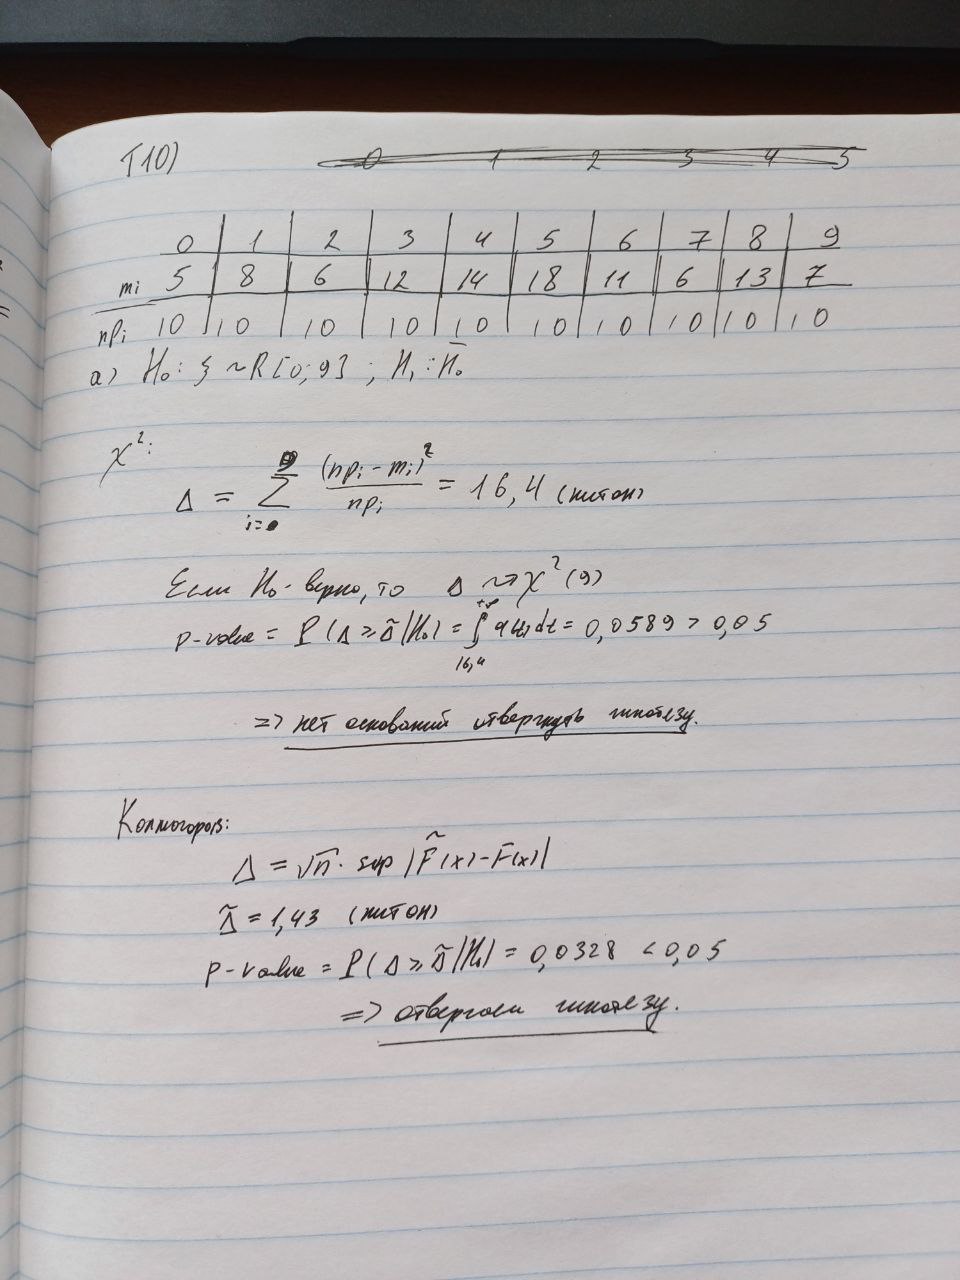 T10)
0 1 2 3 4 5
0 1 2 3 4 5 6 7 8 9
mi 5 8 6 12 14 18 11 6 13 7
npi 10 10 10 10 10 10 10 10 10 10
а) H₀: ξ ~ R[0; 9] ; H₁: H̄₀
χ²:
Δ = Σ i=0 9 (npi - mi)² / npi = 16,4 (питон)
Если H₀ - верно, то Δ ⇝ χ²(9)
p-value = P(Δ ≥ Δ̃|H₀) = ∫ 16,4 +∞ q(t)dt = 0,0589 > 0,05
=> нет оснований отвергнуть гипотезу.
Колмогоров:
Δ = √n · sup |F̃(x) - F(x)|
Δ̃ = 1,43 (питон)
p-value = P(Δ ≥ Δ̃|H₀) = 0,0328 < 0,05
=> отвергаем гипотезу.